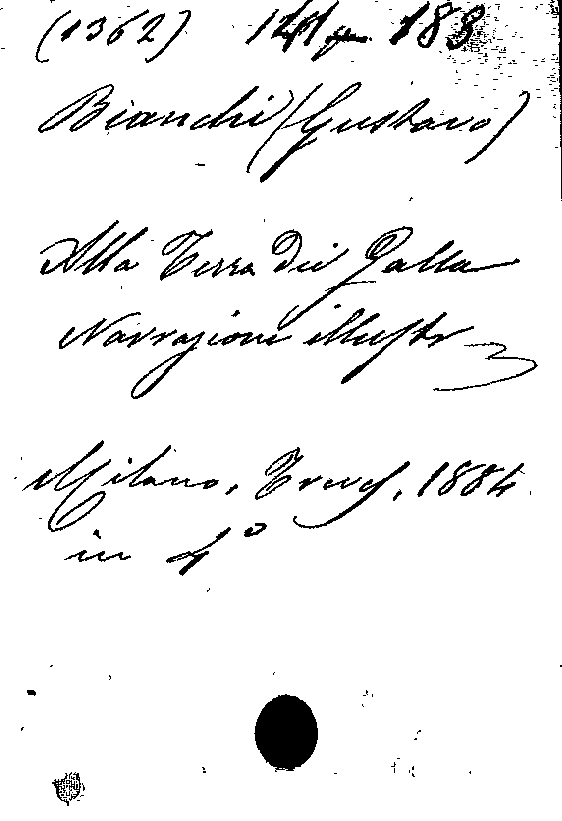 (1362)
Bianchi (Gustavo)
Alla Terra dei Galla
Narrazione illustr
Milano, Treves, 1884
in 4°